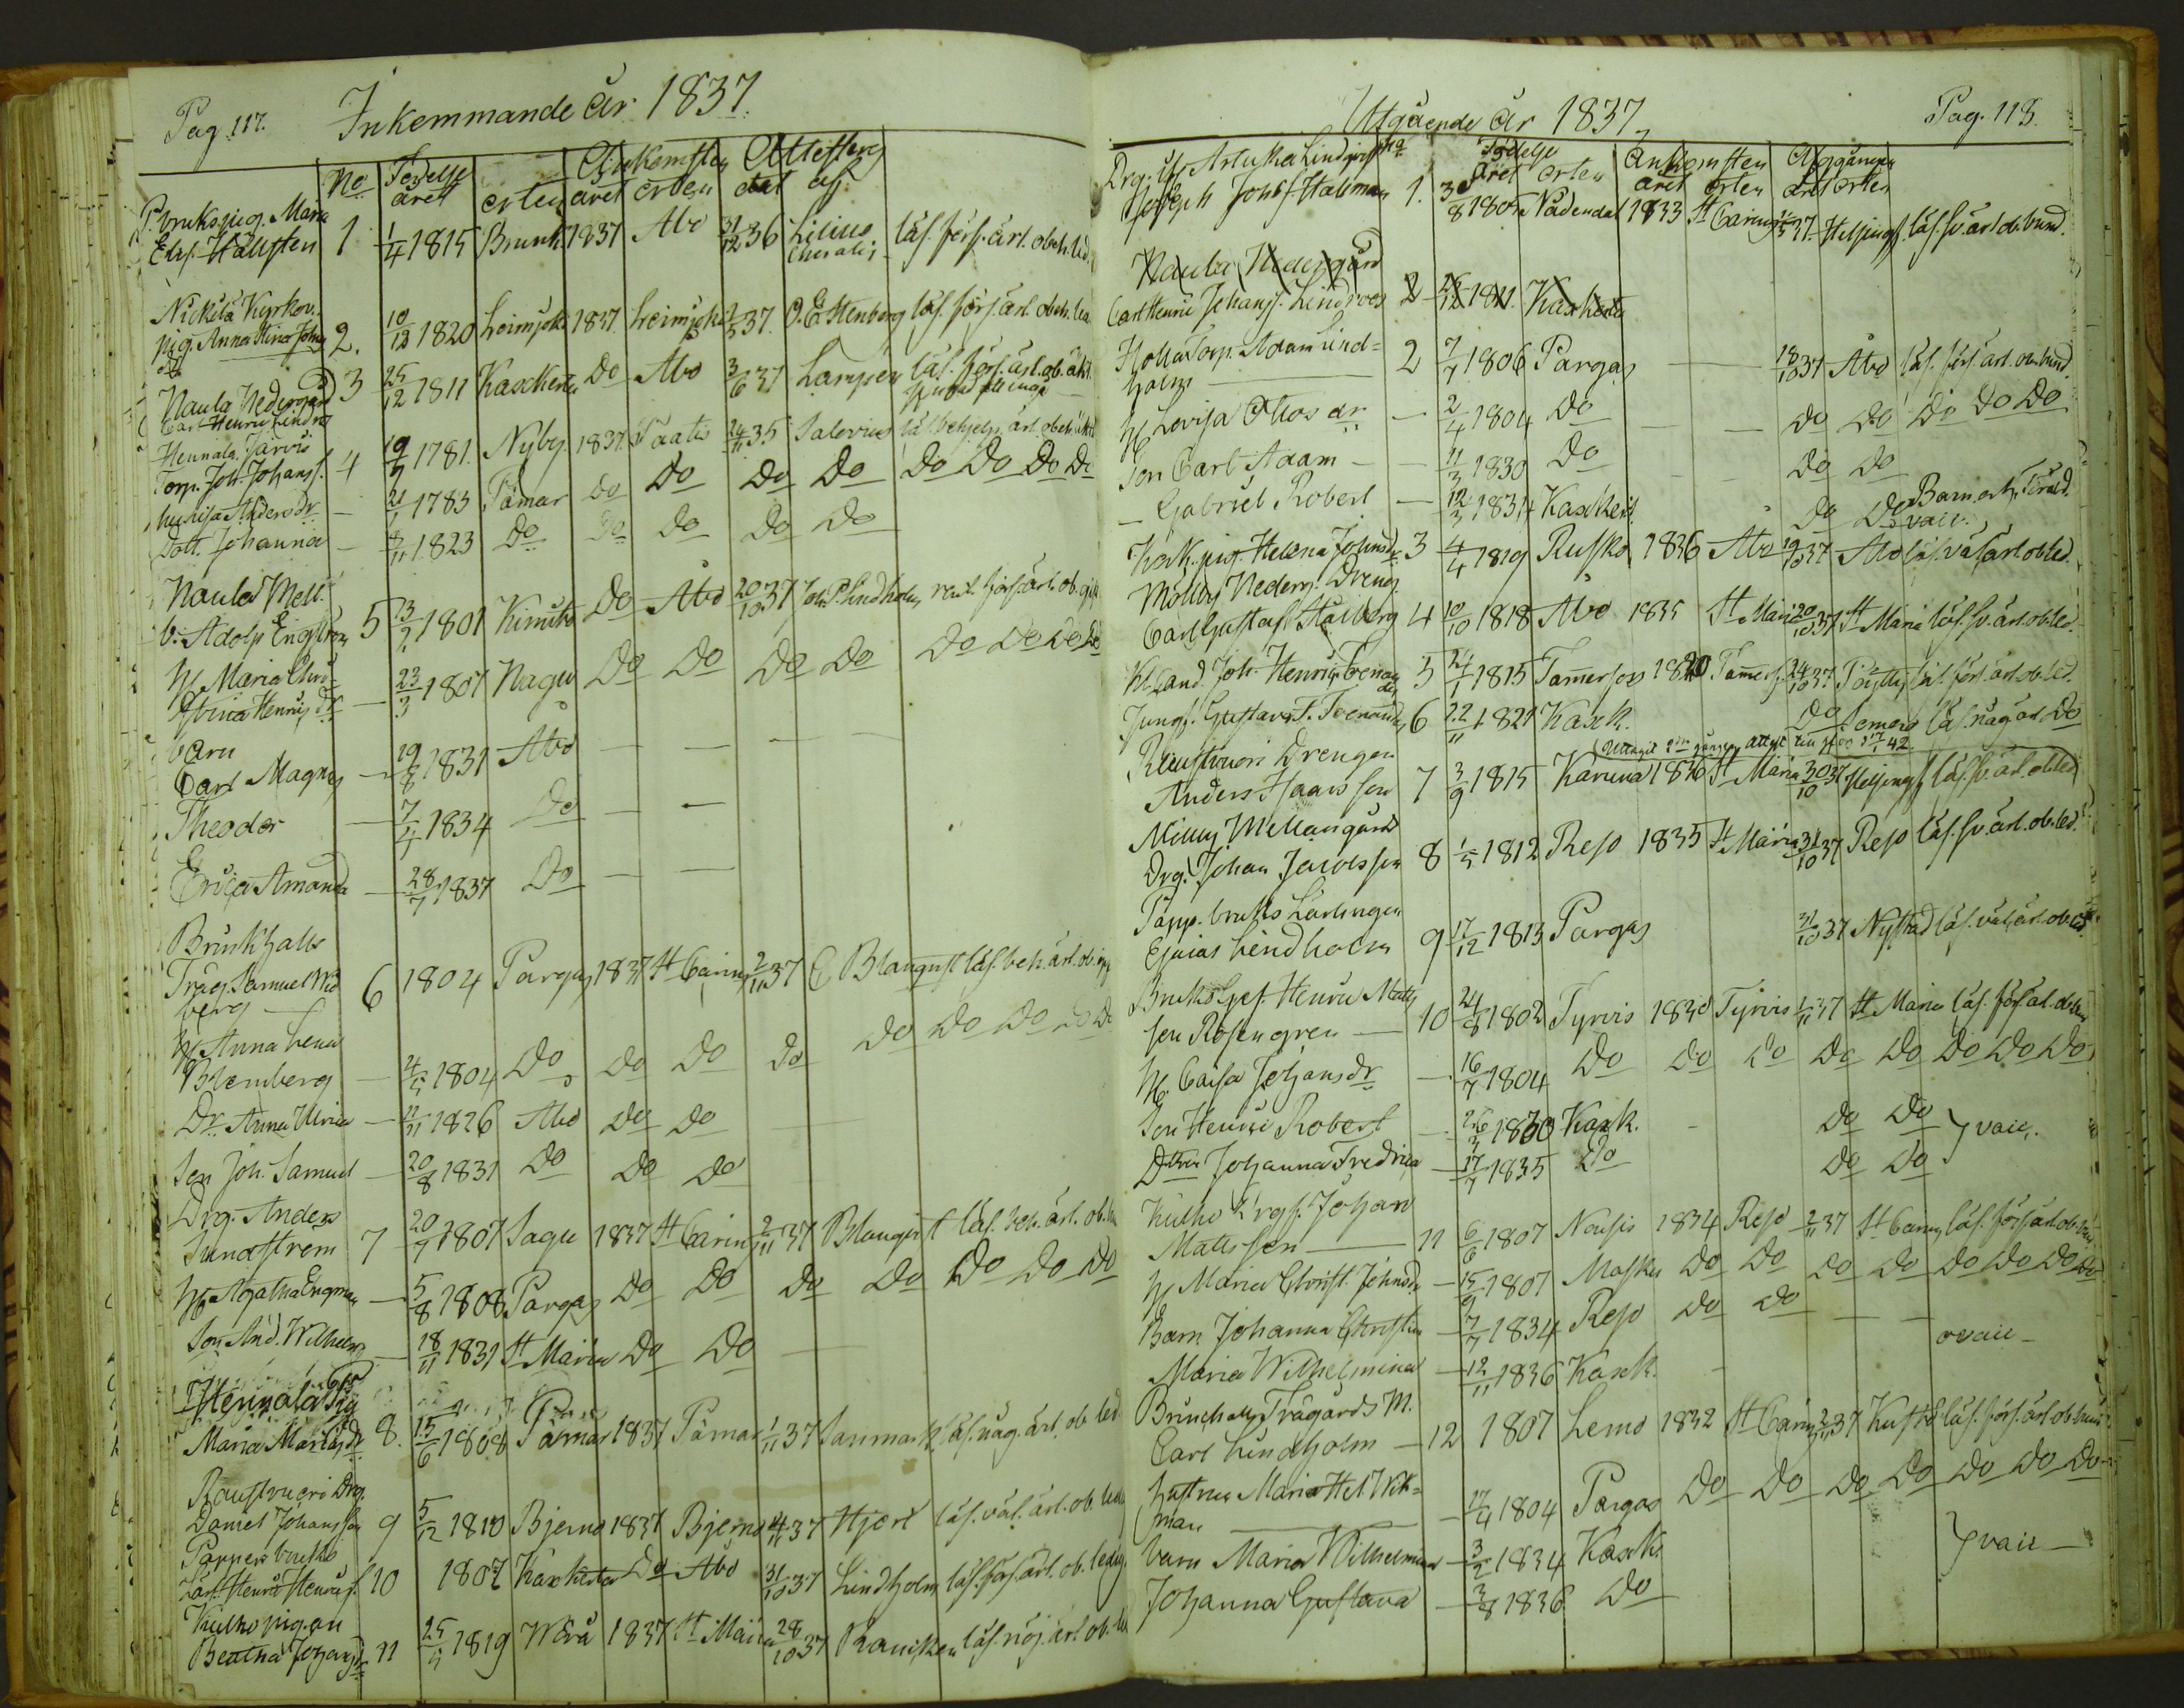 Pag. 117. Inkommande år 1837.
No Födelse Ankomsten Attesten
året orten året orten dat af
P. bruks pig. Maria
Elis. Hällsten 1 1/4 1815 Brunk 1837 Åbo 31/12 36 Lilius läs. förs. ärl. och led.
Nickila Kyrkov.
pig. Anna Stina Johns dr 2. 10/12 1820 Loimjoki 1837 Loimjoki 2/5 37. O. E. Stenberg läs. förs. ärl. och led
Naula Nedergård 3 25/12 1811 Kaskerta Do Åbo 3/6 37 Lampén läs. förs. ärl. ob. äkt.
Carl Henric Lindro
Hennala Järvis
Torp. Joh. Johanss. 4 19/9 1781. Nyby 1837. Paatis 24/11 35 Salovius
Lovisa Anders dr — 21/1 1783 Pämar Do Do Do Do Do Do Do Do
Dott. Johanna — 8/11 1823 Do Do Do Do Do
Naula Mell.
b. Adolf Engström 5 13/2 1801 Kimito Do Åbo 20/10 37 Joh. P. Lindholm förs. ärl. ob.
H. Maria Chri-
stina Henrics dr — 23/3 1807 Nagu Do Do Do Do Do Do Do Do
Barn
Carl Magnus — 19/8 1831 Åbo — — — —
Theodor — 7/4 1834 Do — —
Erica Amanda — 28/7 1837 Do — —
Brunkhalls
Träg. Samuel Wid
berg 6 1804 Pargas 1837 St Carins 2/11 37 E Blanqust läs. beh. ärl. ob.
H. Anna Lena
Blomberg — 4/5 1804 Do Do Do Do Do Do Do Do Do
Dr. Anna Ulrica — 11/11 1826 Åbo Do Do
Son Joh. Samuel — 20/8 1831 Do Do Do
Drg. Anders
Sundström 7 20/7 1807 Sagu 1837 St Carins 2/11 37 Blanquist läs. beh. ärl. ob.
H. Agatha Engman — 5/8 1808 Pargas Do Do Do Do Do Do Do
Son And. Wilhelm — 18/11 1831 St Maria Do Do —
Hennala Pig
Maria Matts dr 8. 15/6 1808 Pämar 1837 Pämar 1/11 37 Sanmark läs. någ. ärl. ob. led
Raustvuori Drg.
Daniel Johansson 9 5/12 1810 Bjerno 1837 Bjerno 4/11 37 Hjert läs. väl. ärl. ob. led
Pappers bruks
Lärl. Henric Henrics. 10 1807 Kaskerta Do Åbo 31/10 37 Lindholm läs. förs. ärl. ob. ledig
Kulho pigan
Beatha Johans dr 11 25/5 1819 Wörå 1837 St Maria 28/10 37 Rancken läs. nöj. ärl. ob.
Utgående år 1837. Pag. 118.
Födelse Ankomsten Afgången
året orten året orten dat orten
Joseph Johs. Hallman 1. 3/8 1805 Nådendal 1833 St Carins 1/5 37. Helsingf. läs. sv. ärl. ob. bund.
Naula Nedergård
Carl Henric Johanss. Lindroos 2 25/12 1811 Kaskerta
Holla Torp. Adam Lind-
holm 2 7/7 1806 Pargas — — 18/10 37 Åbo läs. förs. ärl. ob. bund
H. Lovisa Ottos dr — 2/4 1804 Do — — Do Do Do Do Do
Son Carl Adam — 11/3 1830 Do Do Do
— Gabriel Robert — 12/3 1834 Kaskert. Do Do Barn och
vacc.
Kask. pig. Helena Johns dr 3 4/4 1819 Rusko 1836 Åbo 19/10 37 Åbo läs. väl ärl. ob led.
Mölby Nederg. Dreng.
Carl Gustaf Stålberg 4 10/10 1818 Åbo 1835 St Maria 20/10 37 St Maria läs. sv. ärl. ob. led.
Kl. Land. Joh. Henric Tenan
der 5 24/1 1815 Tamerfors 1820 Tamerf. 24/10 37 Pöytty läs. förs. ärl. ob. led.
Jungf. Gustava F. Tenander 6 22/11 1821 Kask. Do Somero läs. någ ärl Do
Raustvuori Drengen
Anders Hansson 7 3/9 1815 Karuna 1836 St Maria 30/10 37 Helsingf. läs. sv. ärl. ob led
Willy Mellangård
Drg. Johan Jacobsson 8 1/5 1812 Reso 1835 St Maria 31/10 37 Reso läs. sv. ärl. ob. led.
Papp. bruks Lärlingen
Esaias Lindholm 9 17/12 1813 Pargas 31/10 37 Nystad läs. väl ärl. ob led.
Bruks Ges. Henric Matts
son Rosengren — 10 24/8 1802 Tyrvis 1830 Tyrvis 1/11 37 St Maria läs. förs. ärl. ob bun
H. Caisa Johans dr — 16/7 1804 Do Do Do Do Do Do Do Do
Son Henric Robert — 26/3 1830 Kask. Do Do
} vacc.
Dotren Johanna Fredrica — 17/7 1835 Do Do Do
Kulho Krgs. Johan
Mattsson — 11 6/6 1807 Nousis 1834 Reso 2/11 37 St Carins läs. förs. ärl. ob.
H. Maria Christ. Johnsdr — 15/9 1807 Masku Do Do Do Do Do Do Do Do
Barn Johanna Christina — 7/7 1834 Reso Do Do — —
Maria Wilhelmina — 12/11 1836 Kask. ovacc —
Brunchalls Trägårds M.
Carl Lindholm — 12 1807 Lemo 1832 St Carins 2/11 37 Kustö läs. förs. ärl. ob. bund
Hustrun Maria Hel Wik-
man — 17/4 1804 Pargas Do Do Do Do Do Do Do
barn Maria Wilhelmina — 3/2 1834 Kask.
} vacc —
Johanna Gustava — 3/8 1836 Do